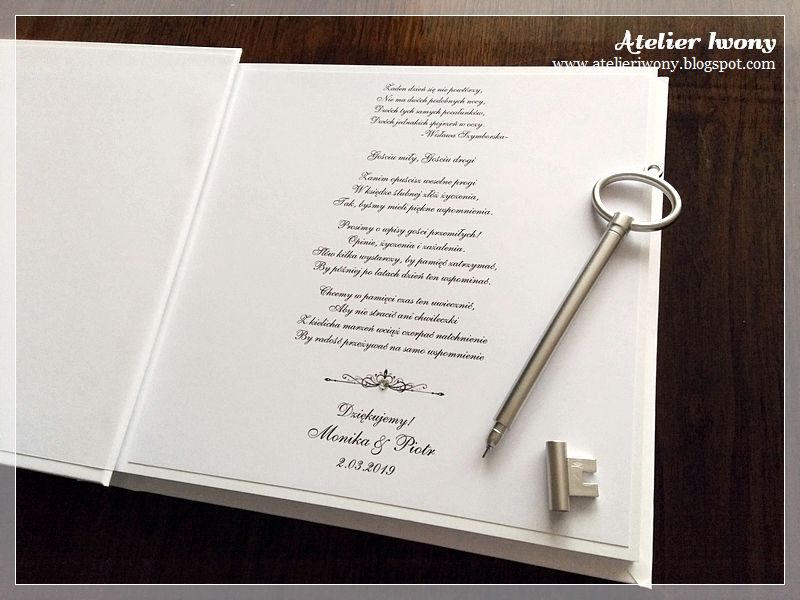 Atelier Iwony
www.atelieriwony.blogspot.com
Żaden dzień się nie powtórzy,
Nie ma dwóch podobnych nocy,
Dwóch tych samych pocałunków,
Dwóch jednakich spojrzeń w oczy.
-Wisława Szymborska-
Gościu miły, Gościu drogi
Zanim opuścisz weselne progi
W księdze ślubnej złóż życzenia,
Tak, byśmy mieli piękne wspomnienia.
Prosimy o wpisy gości przemiłych!
Opinie, życzenia i zażalenia.
Słów kilka wystarczy, by pamięć zatrzymać,
By później po latach dzień ten wspominać.
Chcemy w pamięci czas ten uwiecznić,
Aby nie stracić ani chwileczki
Z kielicha marzeń wciąż czerpać natchnienie
By radość przeżywać na samo wspomnienie
Dziękujemy!
Monika & Piotr
2.03.2019